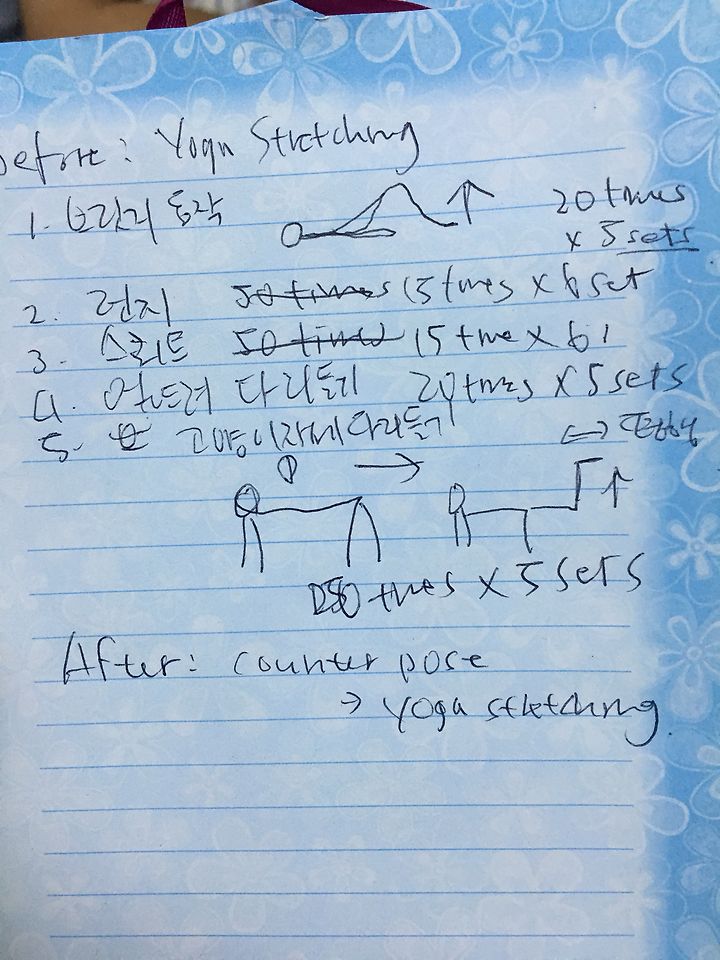 Before: Yoga Stretching
1. 브릿지 동작 20 times
x 5 sets
2. 런지 50 times 15 times x 6 set
3. 스쿼트 50 times 15 time x 6
4. 엎드려 다리들기 20 times x 5 sets
5. 고양이자세 다리들기
times x 5 sets
After: counter pose
→ yoga stretching